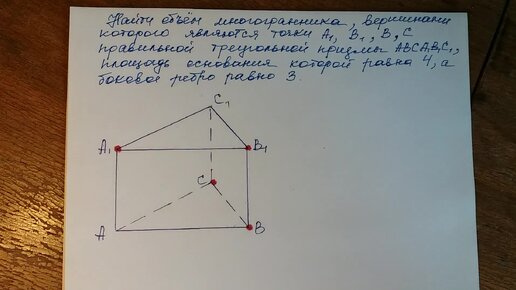 Найти объём многогранника, вершинами
которого являются точки A₁, B₁, B, C
правильной треугольной призмы ABCA₁B₁C₁,
площадь основания которой равна 4, а
боковое ребро равно 3.
C₁
A₁
B₁
C
A
B